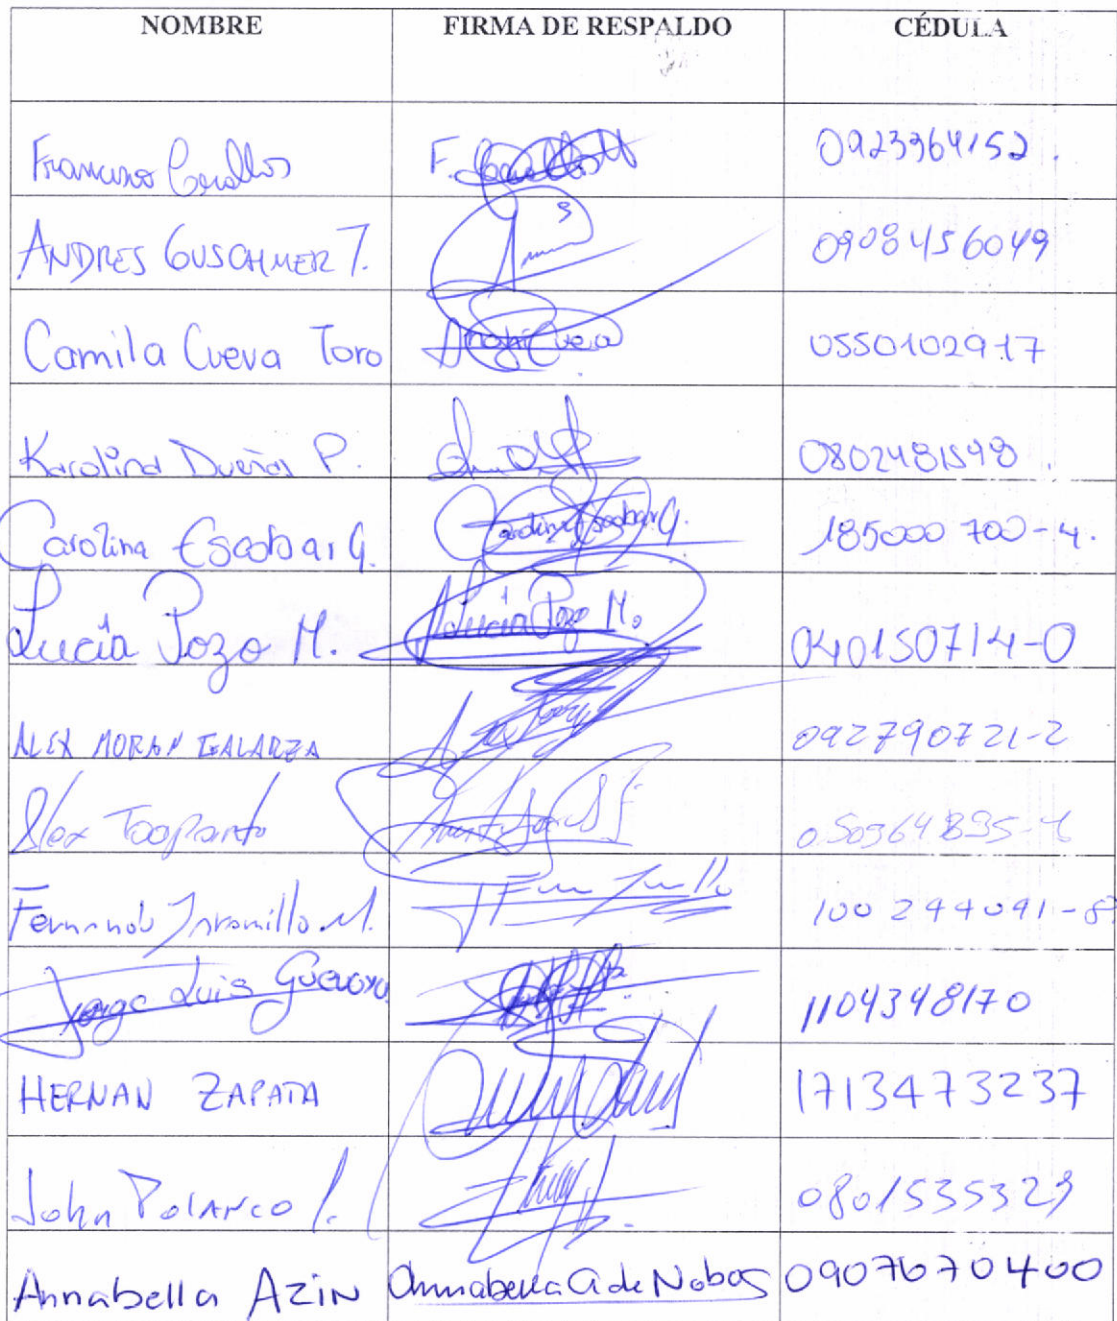 NOMBRE FIRMA DE RESPALDO CÉDULA
Francisco Cevallos F. Cevallos 0923364152.
ANDRES GUSCHMER T. 0908456049
Camila Cueva Toro Cueva 0550102917
Karolina Dueñas P. 0802481548.
Carolina Escobar G. Carolina Escobar G. 185000700-4.
Lucía Pozo M. Lucía Pozo M. 040150714-0
ALEX MORAN GALARZA 092790721-2
Alex Toapanta
Fernando Jaramillo M. 100244091-8
Jorge Luis Guevara 1104348170
HERNAN ZAPATA 1713473237
John POLANCO 0801535329
Annabella AZIN Annabella A de Noboa 0907670400